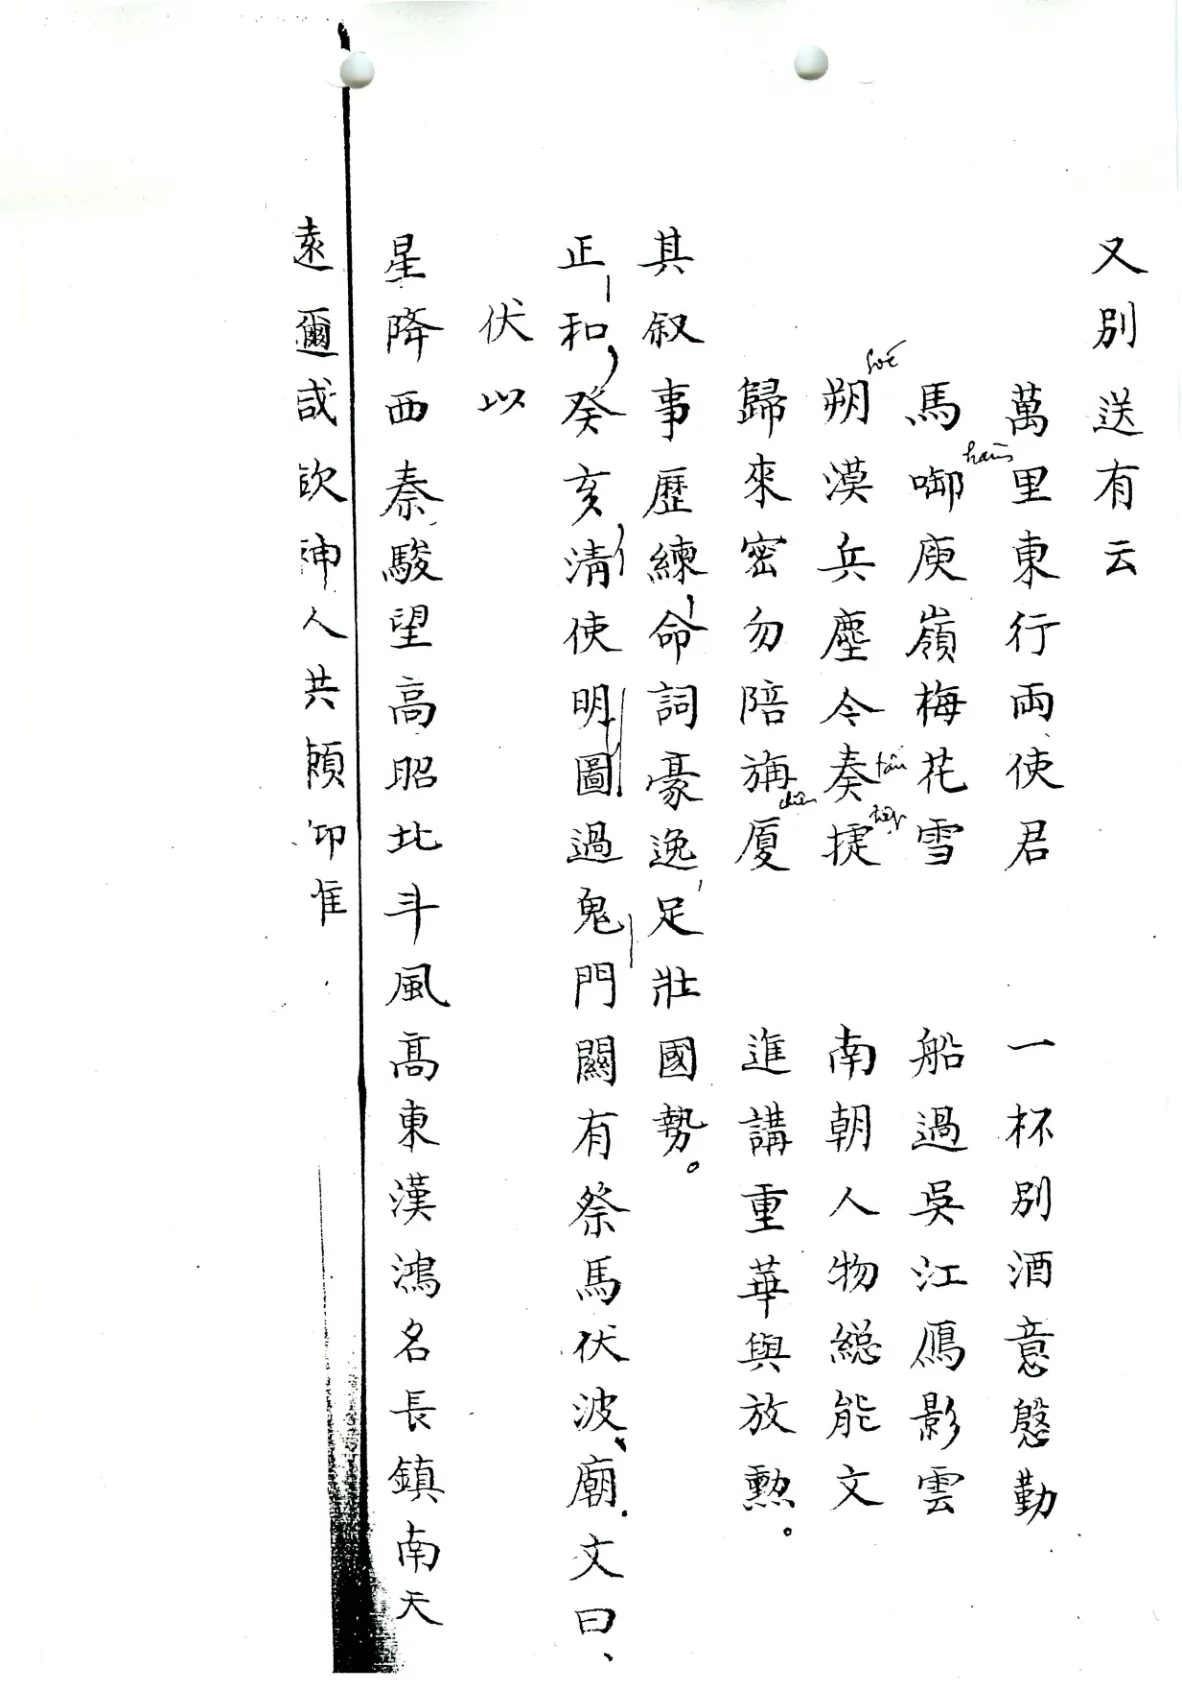 又別送有云
萬里東行兩使君 一杯別酒意慇勤
馬啣庾嶺梅花雪 船過吳江鴈影雲
朔漠兵塵今奏捷 南朝人物総能文
歸來密勿陪旃厦 進講重華與放勲。
其叙事歷練命詞豪逸足壯國勢。
正和癸亥清使明圖過鬼門關有祭馬伏波廟文曰、
伏以
星降西秦駿望高昭北斗風高東漢鴻名長鎮南天
遠邇咸欽神人共頼卬隹
hàm
tấu
tiệp